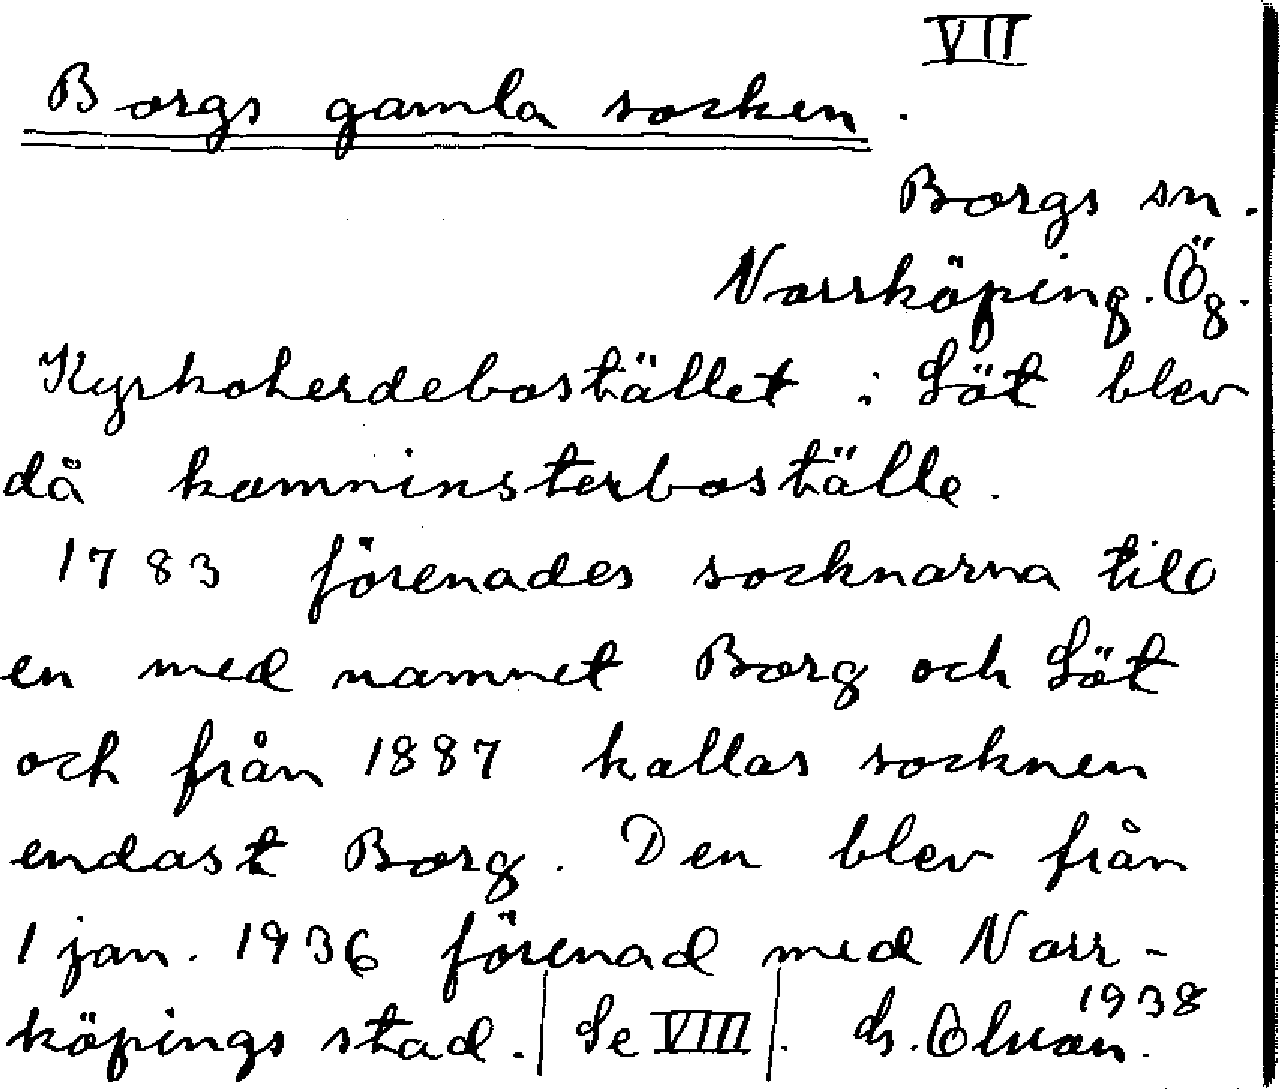 VII
Borgs gamla socken.
Borgs sn.
Norrköping. Ög.
Kyrkoherdebostället i Löt blev
då komninsterboställe.
1783 förenades socknarna till
en med namnet Borg och Löt
och från 1887 kallas socknen
endast Borg. Den blev från
1 jan. 1936 förenad med Norr-
köpings stad. | Se VIII |.
1938